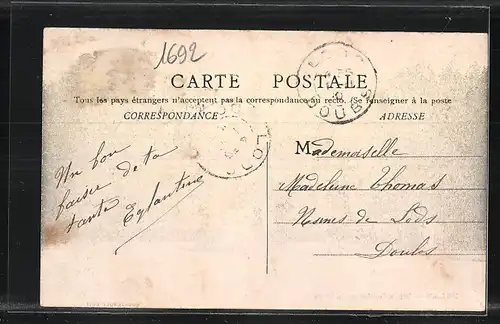 1692
CARTE POSTALE
Tous les pays étrangers n'acceptent pas la correspondance au recto. (Se renseigner à la poste
CORRESPONDANCE
ADRESSE
DOUBS
LODS
Un bon
baiser de ta
tante Eglantine
Mademoiselle
Madeleine Thomas
de Lods
Doubs